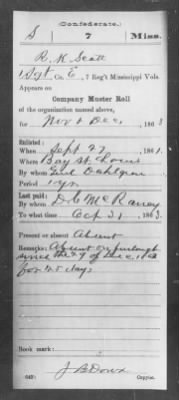 (Confederate.)
S 7 Miss.
R. K. Scott
1 Sgt, Co. E, 7 Reg't Mississippi Vols.
Appears on
Company Muster Roll
of the organization named above,
for Nov & Dec, 1863
Enlisted:
When Sept 27, 1861
Where Bay St. Louis
By whom Genl Dahlgren
Period 1 yr
Last paid:
By whom D. C. McRaney
To what time Oct 31, 1863
Present or absent Absent
Remarks: Absent on furlough
since the 29 of Dec 1863
for 25 days
Book mark:
J B Down
(642) Copyist.